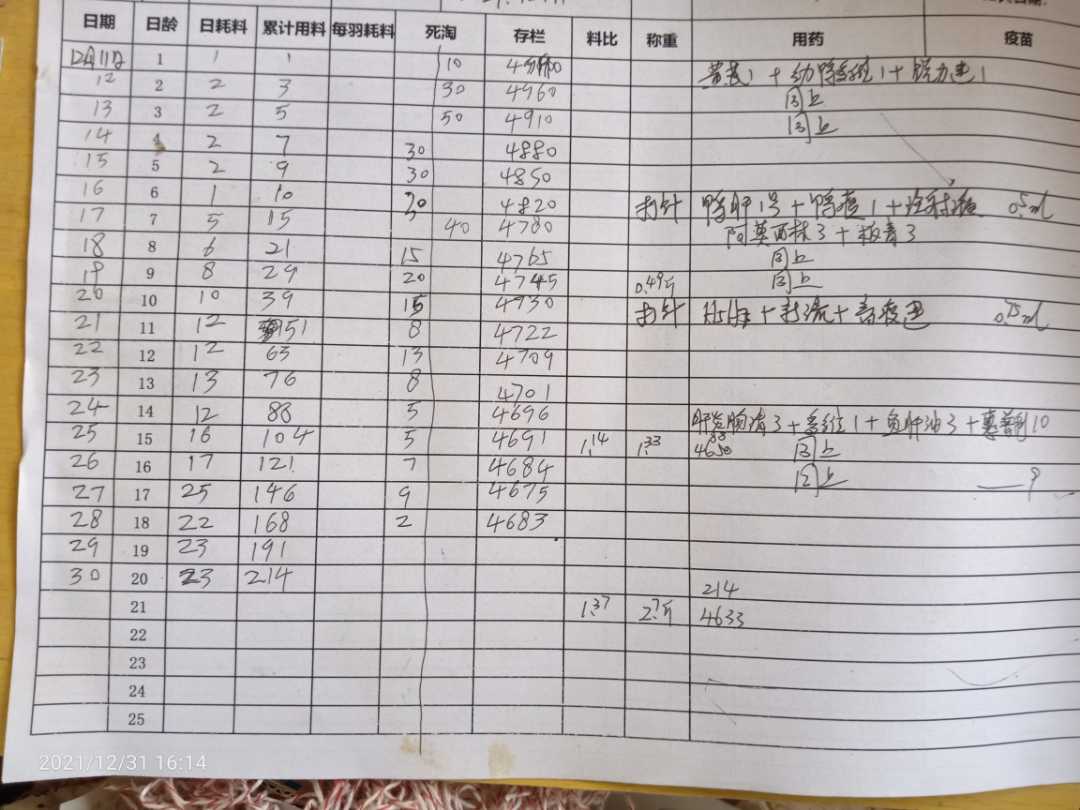 日期 日龄 日耗料 累计用料 每羽耗料 死淘 存栏 料比 称重 用药 疫苗
12月11日 1 1 1 10
12 2 2 3 30 4960 同上
13 3 2 5 50 4910 同上
14 4 2 7 30 4880
15 5 2 9 30 4850
16 6 1 10 30 4820 打针 鸭肝1号+鸭瘟1+ 0.5ml
17 7 5 15 40 4780 阿莫西林3+板青3
18 8 6 21 15 4765 同上
19 9 8 29 20 4745 0.49斤 同上
20 10 10 39 15 4730 打针 0.75ml
21 11 12 51 8 4722
22 12 12 63 13 4709
23 13 13 76 8 4701
24 14 12 88 5 4696 3+ 1+鱼肝油3+ 10
25 15 16 104 5 4691 1.14 1.33 同上
26 16 17 121 7 4684 同上
27 17 25 146 9 4675
28 18 22 168 2 4683
29 19 23 191
30 20 23 214 214
21 1.37 2.7斤 4633
22
23
24
25
2021/12/31 16:14